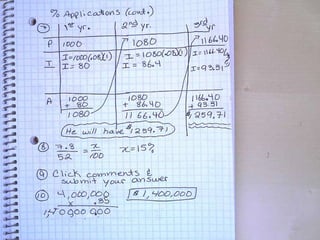 % Applications (cont.)
⑦ 1st yr. 2nd yr. 3rd yr
P 1000 1080 1166.40
I I=1000(.08)(1) I=1080(.08)(1) I=1166.40
I= 80 I= 86.4 I=93.31
A 1000 1080 1166.40
+ 80 + 86.40 + 93.31
1080 1166.40 $1259.71
He will have $1259.71
⑧ 7.8/52 = x/100 x=15%
⑨ Click comments &
submit your answer
⑩ 4,000,000 $1,400,000
x .35